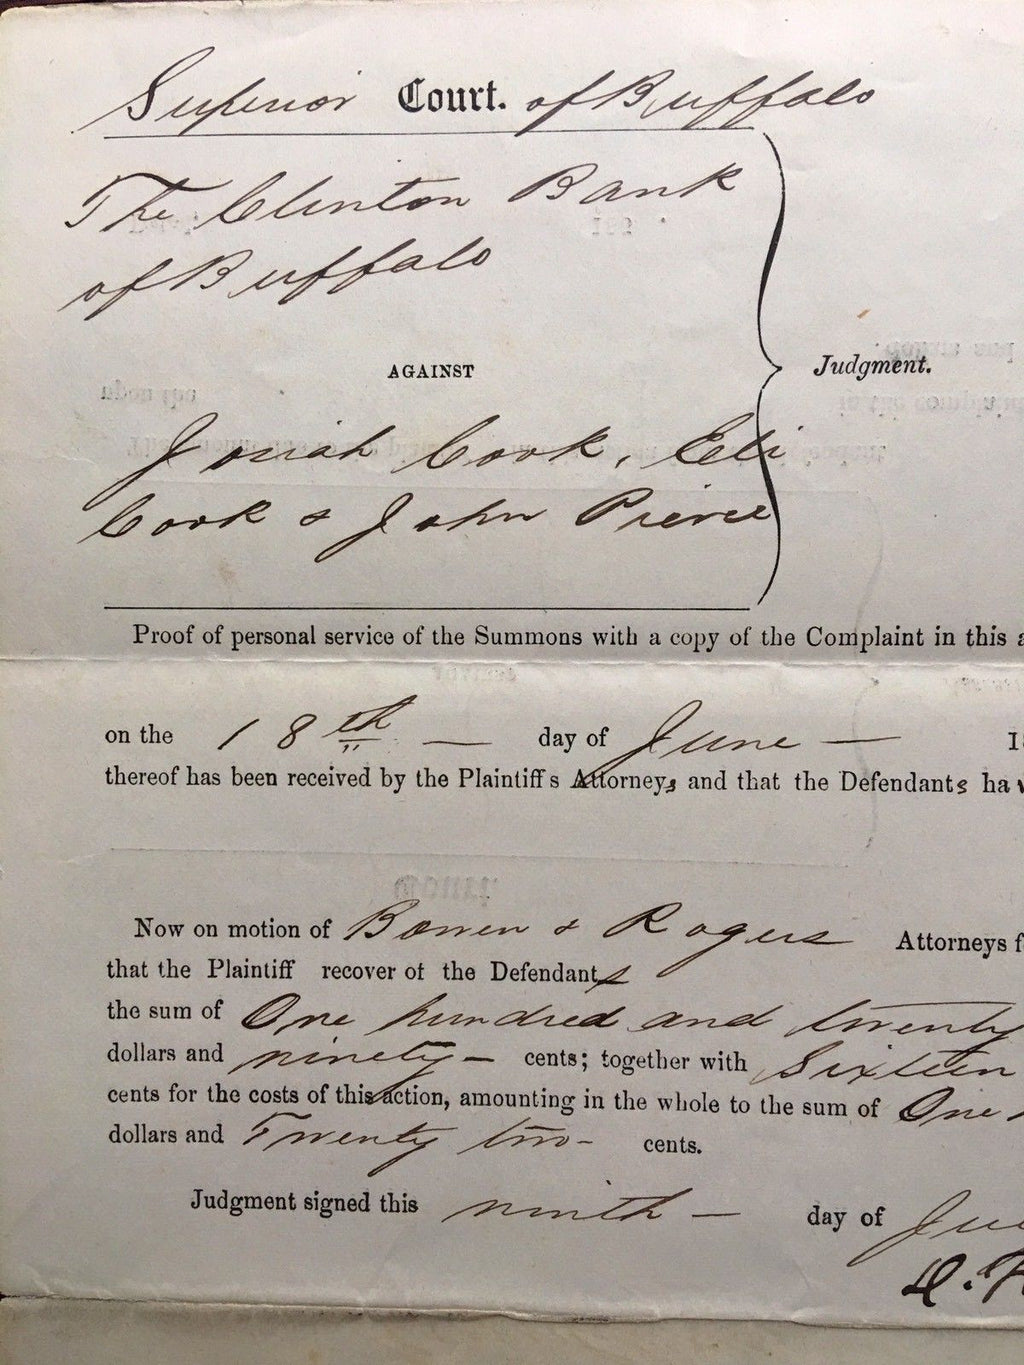 Superior Court. of Buffalo
The Clinton Bank
of Buffalo
AGAINST
Judgment.
Josiah Cook, Eli
Cook & John Pierce
Proof of personal service of the Summons with a copy of the Complaint in this a
on the 18th — day of June — 18
thereof has been received by the Plaintiff's Attorneys and that the Defendants hav
Now on motion of Bowen & Rogers Attorneys f
that the Plaintiff recover of the Defendants
the sum of One hundred and twenty
dollars and ninety — cents; together with Sixteen
cents for the costs of this action, amounting in the whole to the sum of One h
dollars and Twenty two - cents.
Judgment signed this ninth — day of Ju